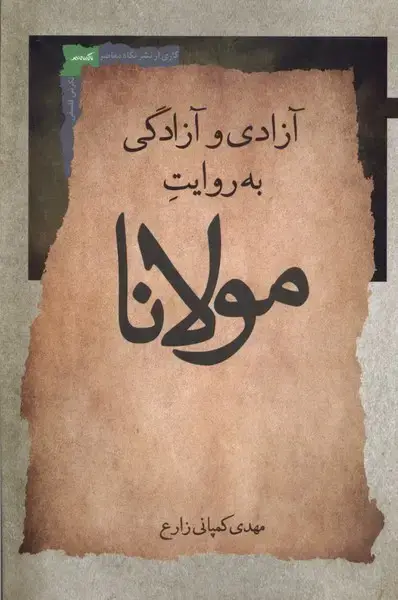 کاری از نشر نگاه معاصر
آزادی و آزادگی
به روایتِ
مولانا
مهدی کمپانی زارع